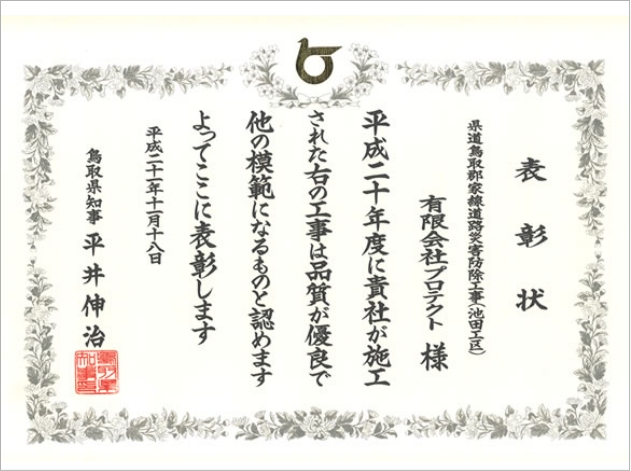 表彰状
県道鳥取郡家線道路災害防除工事(池田工区)
有限会社プロテクト 様
平成二十年度に貴社が施工
された右の工事は品質が優良で
他の模範になるものと認めます
よってここに表彰します
平成二十一年十一月十八日
鳥取県知事 平井伸治